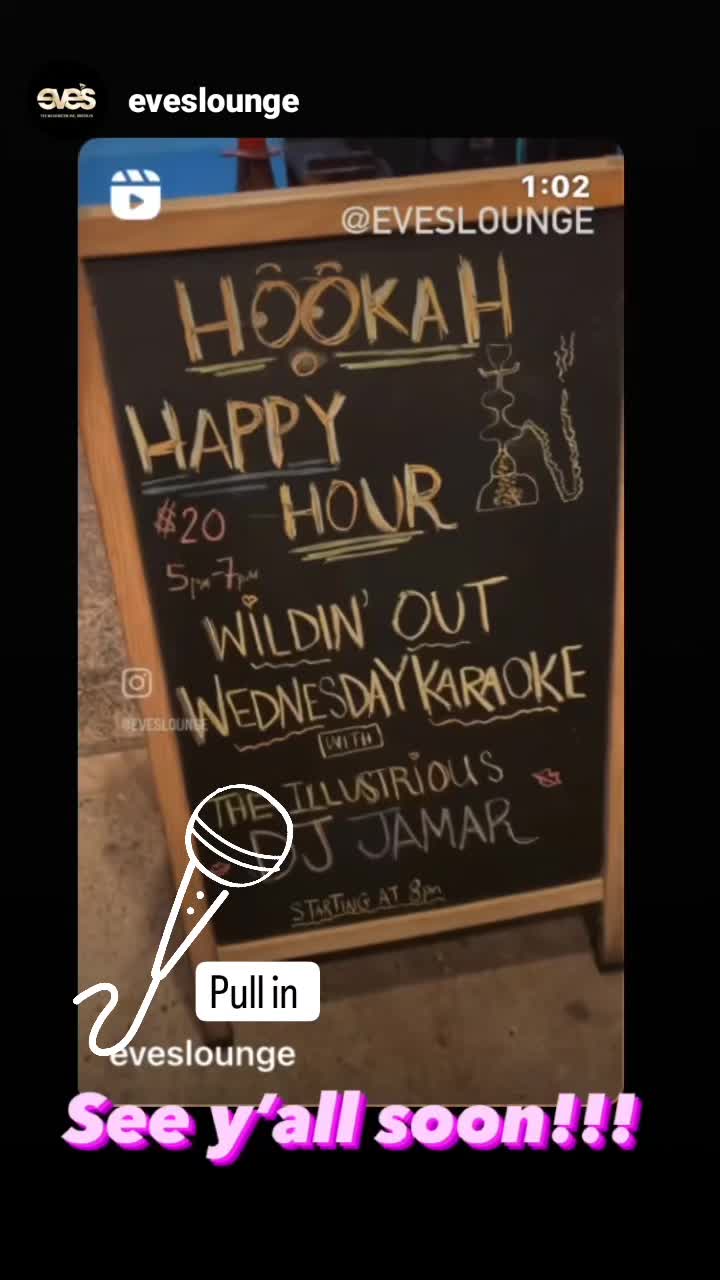 eve's
eveslounge
1:02
@EVESLOUNGE
HÔÔKAH
HAPPY
HOUR
$20
5pm-7pm
WILDIN' OUT
WEDNESDAY KARAOKE
WITH
THE ILLUSTRIOUS
DJ JAMAR
STARTING AT 8pm
@EVESLOUNGE
Pull in
eveslounge
See y'all soon!!!